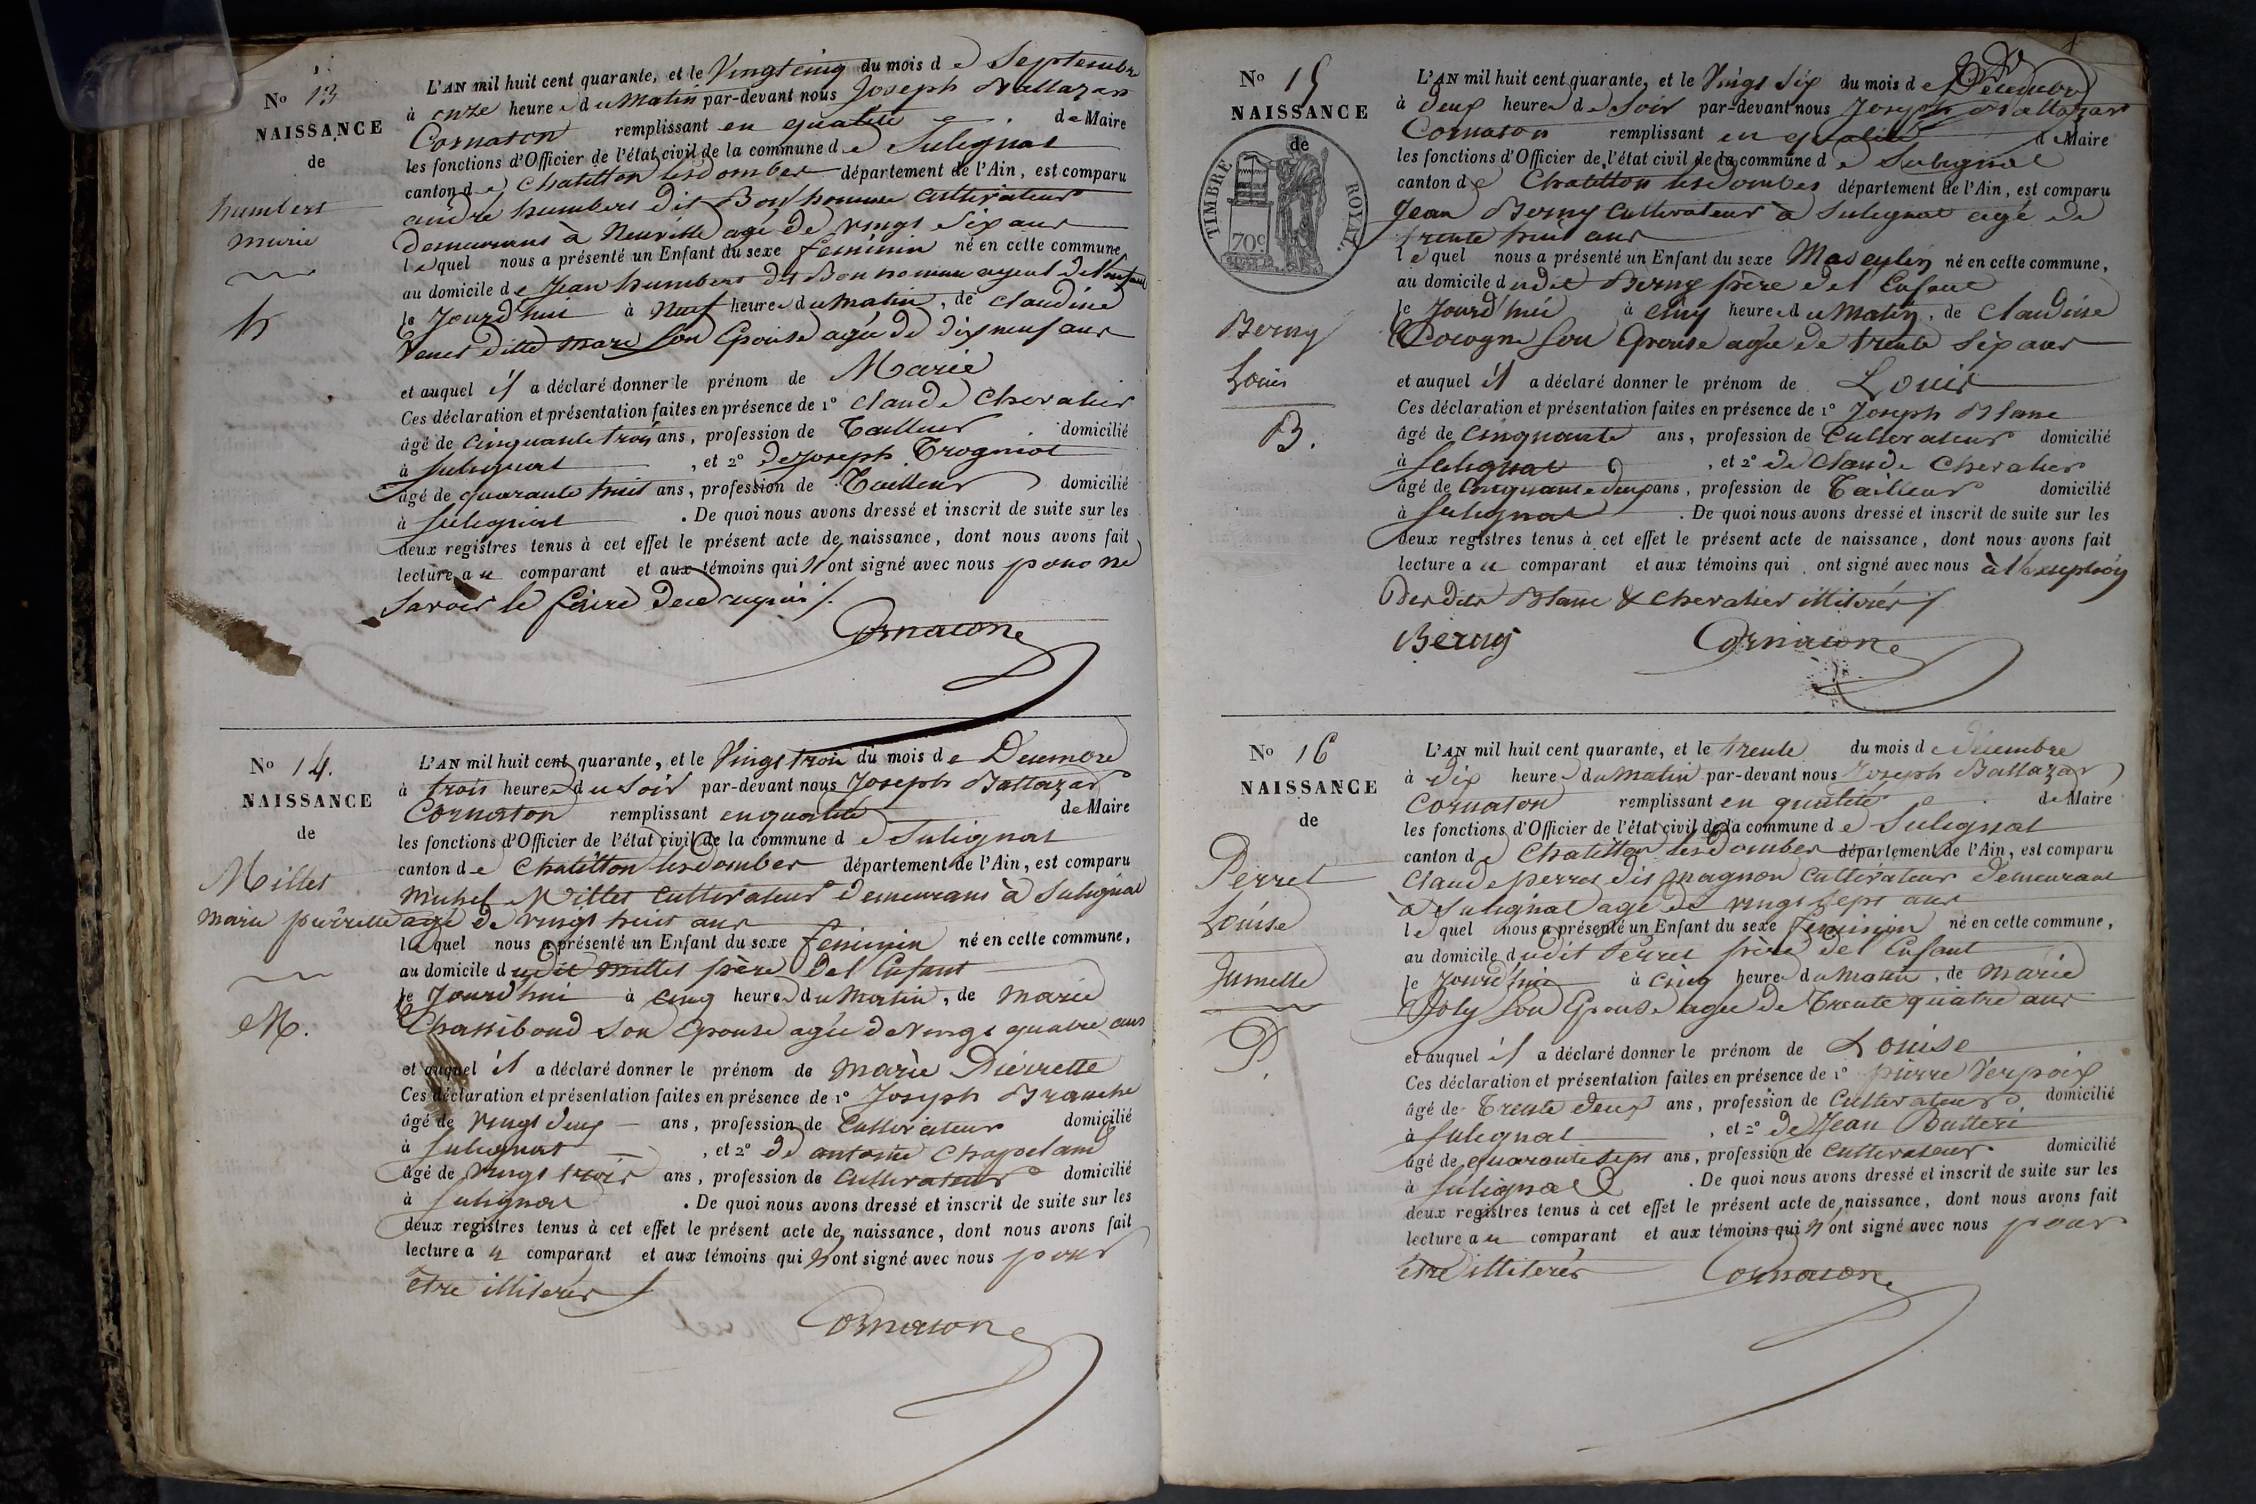 No 13
NAISSANCE
de
humbert
marie
h
L'AN mil huit cent quarante, et le Vingt cinq du mois de Septembre
à onze heure du Matin par-devant nous Joseph Baltazar
Cornaton remplissant en qualité de Maire
les fonctions d'Officier de l'état civil de la commune de Sulignat
canton de Chatillon les dombes département de l'Ain, est comparu
andre humbert dit Bonhomme cultivateur
demeurant à Neuville agé de vingt six ans
lequel nous a présenté un Enfant du sexe feminin né en cette commune,
au domicile de Jean humbert dit Bonhomme ayeul del enfant
le Jourd'hui à Neuf heure du Matin, de claudine
ditte mare son Epouse agée de dix neuf ans
et auquel il a déclaré donner le prénom de Marie
Ces déclaration et présentation faites en présence de 1° claude chevalier
âgé de cinquante trois ans, profession de Tailleur domicilié
à Sulignat , et 2° de Joseph Trogniot
âgé de quarante huit ans, profession de Tailleur domicilié
à Sulignat . De quoi nous avons dressé et inscrit de suite sur les
deux registres tenus à cet effet le présent acte de naissance, dont nous avons fait
lecture au comparant et aux témoins qui n'ont signé avec nous pour ne
savoir le faire de ce requis /.
Cornaton
No 14.
NAISSANCE
de
Millet
marie pierrette
M.
L'AN mil huit cent quarante, et le Vingt trois du mois de Decembre
à trois heure du soir par-devant nous Joseph Baltazar
Cornaton remplissant en qualité de Maire
les fonctions d'Officier de l'état civil de la commune de Sulignat
canton de Chatillon les dombes département de l'Ain, est comparu
Michel Millet cultivateur demeurant à Sulignat
agé de vingt huit ans
lequel nous a présenté un Enfant du sexe feminin né en cette commune,
au domicile dudit Millet père del Enfant
le Jourd'hui à cinq heure du Matin, de marie
Chassiboud son Epouse agée de vingt quatre ans
et auquel il a déclaré donner le prénom de Marie Pierrette
Ces déclaration et présentation faites en présence de 1° Joseph Branche
âgé de vingt deux ans, profession de Cultivateur domicilié
à Sulignat , et 2° de antoine Chapeland
âgé de vingt trois ans, profession de Cultivateur domicilié
à Sulignat . De quoi nous avons dressé et inscrit de suite sur les
deux registres tenus à cet effet le présent acte de naissance, dont nous avons fait
lecture au comparant et aux témoins qui n'ont signé avec nous pour
être illiterés
Cornaton
No 15
NAISSANCE
de
TIMBRE ROYAL.
70c
Berny
Louis
B.
L'AN mil huit cent quarante, et le Vingt six du mois de Décembre
à deux heure de soir par-devant nous Joseph Baltazar
Cornaton remplissant en qualité de Maire
les fonctions d'Officier de l'état civil de la commune de Sulignat
canton de Chatillon les dombes département de l'Ain, est comparu
Jean Berny cultivateur à Sulignat agé de
trente huit ans
lequel nous a présenté un Enfant du sexe Masculin né en cette commune,
au domicile dudit Berny père del Enfant
le Jourd'hui à cinq heure du Matin, de claudine
Cocogne son Epouse agée de trente six ans
et auquel il a déclaré donner le prénom de Louis
Ces déclaration et présentation faites en présence de 1° Joseph Blanc
âgé de cinquante ans, profession de cultivateur domicilié
à Sulignat , et 2° de claude chevalier
âgé de cinquante deux ans, profession de Tailleur domicilié
à Sulignat . De quoi nous avons dressé et inscrit de suite sur les
deux registres tenus à cet effet le présent acte de naissance, dont nous avons fait
lecture au comparant et aux témoins qui ont signé avec nous à l'exception
Desdits Blanc & chevalier illiterés /
Berny Cornaton
No 16
NAISSANCE
de
Perret
Louise
Jumelle
P.
L'AN mil huit cent quarante, et le trente du mois de décembre
à dix heure du Matin par-devant nous Joseph Baltazar
Cornaton remplissant en qualité de Maire
les fonctions d'Officier de l'état civil de la commune de Sulignat
canton de Chatillon les dombes département de l'Ain, est comparu
Claude perret dit magnon cultivateur demeurant
à Sulignat agé de vingt sept ans
lequel nous a présenté un Enfant du sexe feminin né en cette commune,
au domicile dudit Perret père del Enfant
le Jourd'hui à cinq heure du Matin, de Marie
Joly son Epouse agée de Trente quatre ans
et auquel il a déclaré donner le prénom de Louise
Ces déclaration et présentation faites en présence de 1° pierre Verpoix
âgé de Trente deux ans, profession de Cultivateur domicilié
à Sulignat , et 2° de Jean Butteri
âgé de quarante sept ans, profession de cultivateur domicilié
à Sulignat . De quoi nous avons dressé et inscrit de suite sur les
deux registres tenus à cet effet le présent acte de naissance, dont nous avons fait
lecture au comparant et aux témoins qui n'ont signé avec nous pour
être illiterés Cornaton